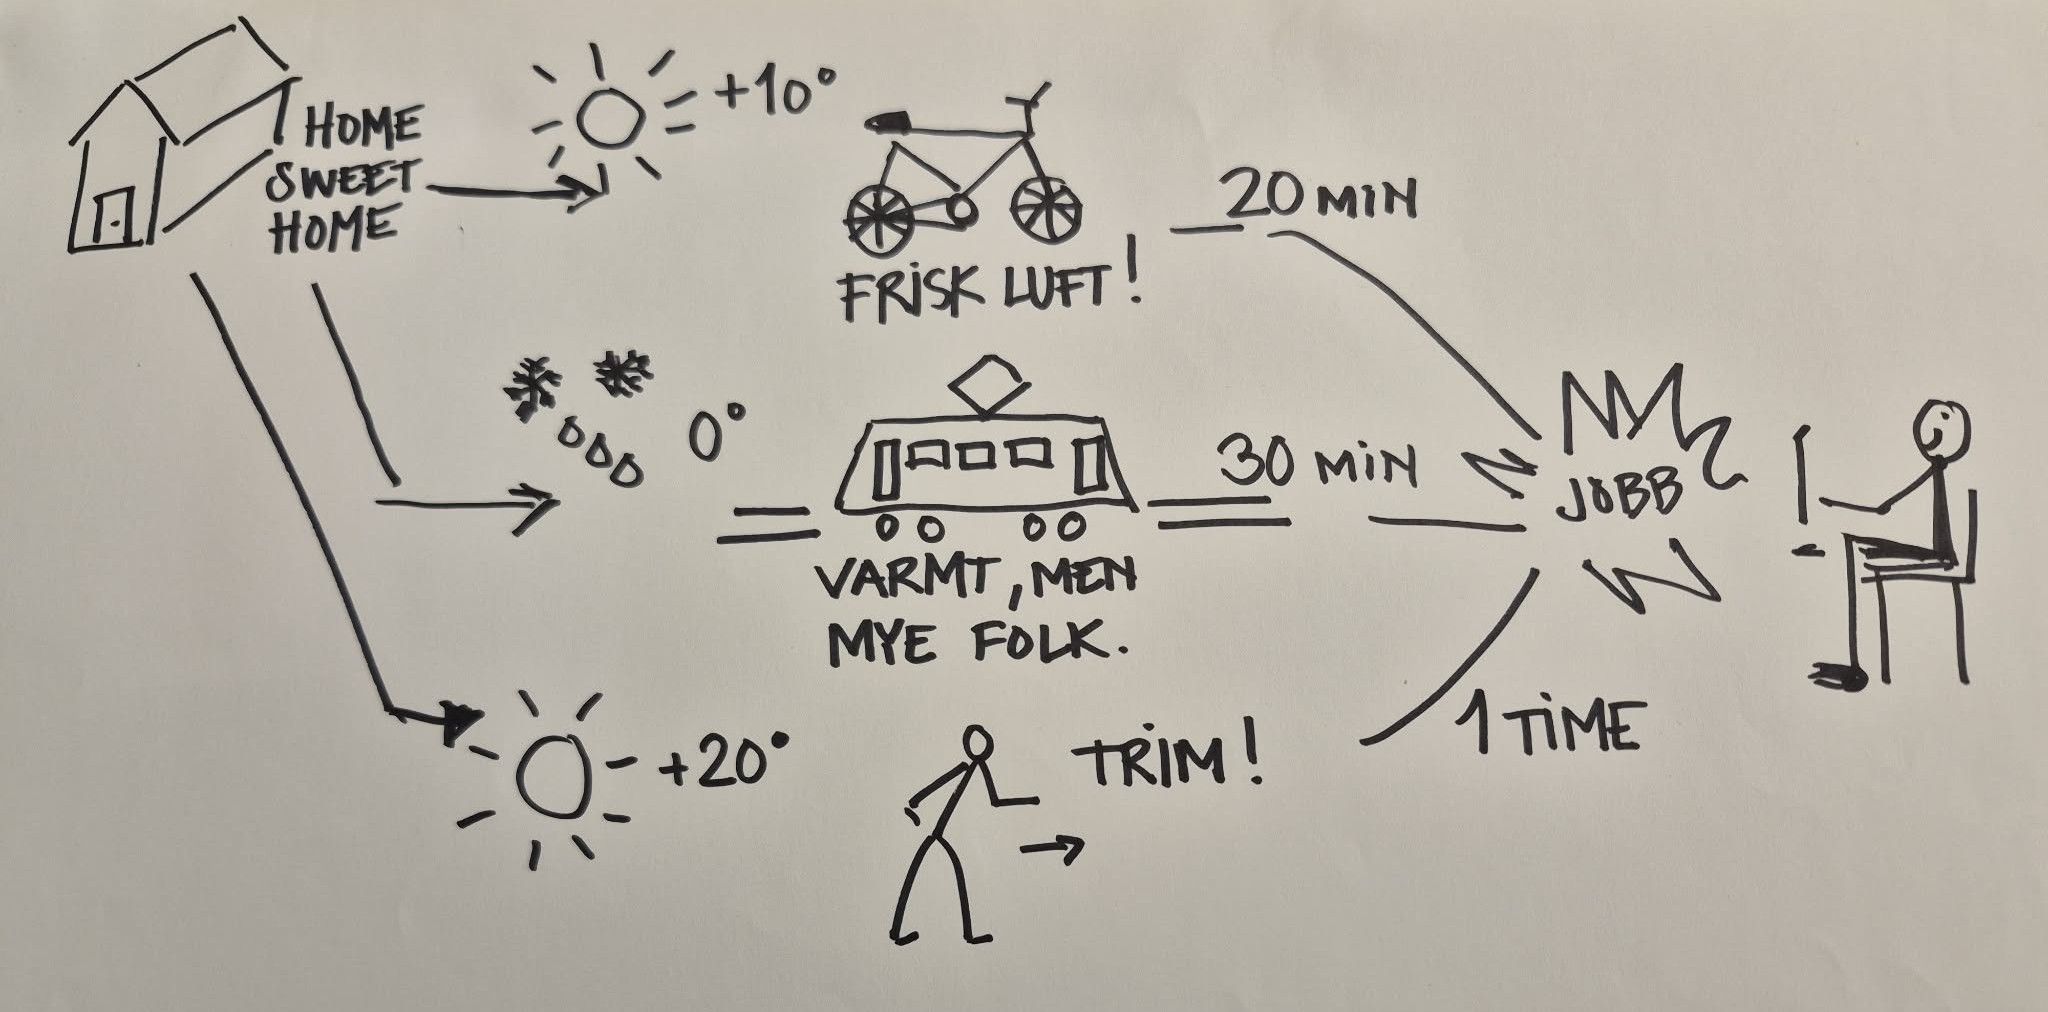 HOME
SWEET
HOME
+10°
FRISK LUFT!
20 MIN
0°
VARMT, MEN
MYE FOLK.
30 MIN
JOBB
+20°
TRIM!
1 TIME